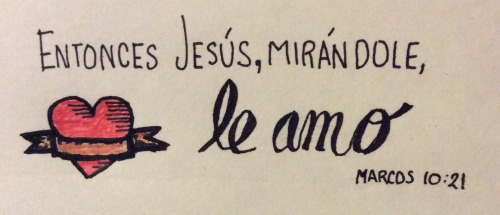 ENTONCES JESÚS, MIRÁNDOLE,
le amo
MARCOS 10:21